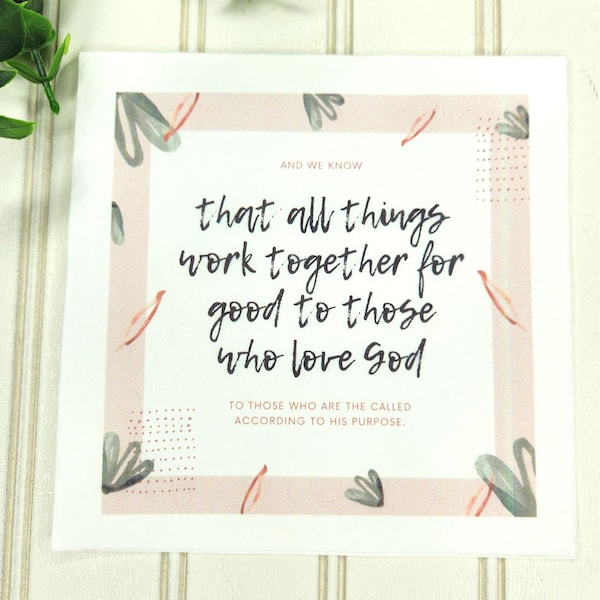 AND WE KNOW
that all things
work together for
good to those
who love God
TO THOSE WHO ARE THE CALLED
ACCORDING TO HIS PURPOSE.